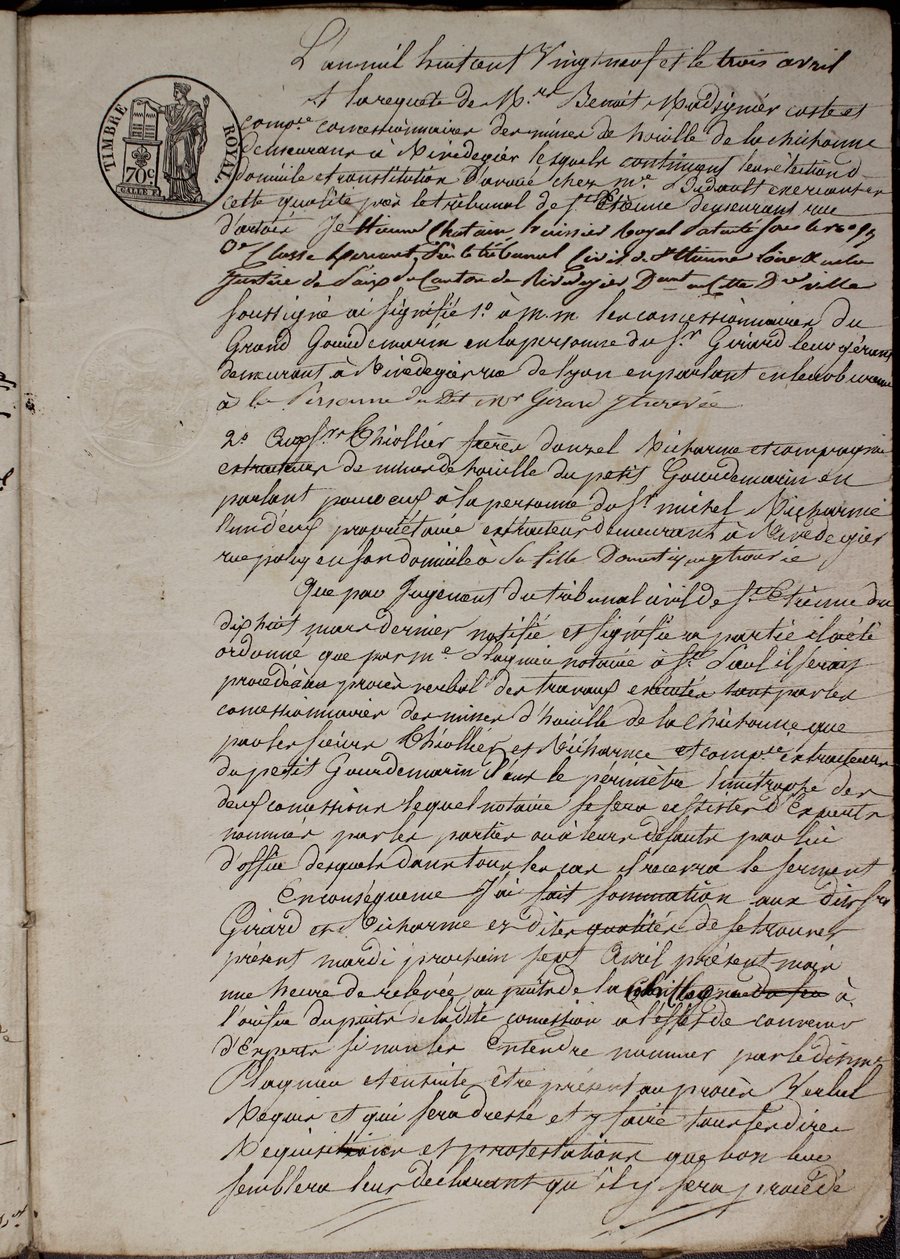 TIMBRE ROYAL.
70c
L'an mil huit cent vingt neuf et le trois avril
A la requete de M.rs Benoit Madignier coste et
comp.ie concessionnaires des mines de houille de la chichonne
demeurans à Rivedegier lesquels continuent leur élection de
domicile et constitution d'avoué chez m.e Bidault exercant en
cette qualité près le tribunal de S.t Etienne demeurant rue
d'artois Je Etienne Chatain huissier Royal Patenté sous le
Classe exercant Près le tribunal Civil de St Etienne Loire &
Justice de Paix du Canton de Rivedegier Dem.t en Cette D.te ville
soussigné ai signifié 1.o à m.m les concessionnaires du
Grand Gourdemarin en la personne du S.r Girard leur gérant
demeurant à Rivedegier rue de Lyon en parlant en leur bureau
à la Personne du Dit mr Girard y trouvée
2.o Aux S.rs Thiollier frères donzel Richarme et compagnie
extracteurs de mines de houille du petit Gourdemarin en
parlant pour eux à la personne du S.r michel Richarme
l'un d'eux propriétaire extracteur demeurant à Rivedegier
rue paluy en son domicile à sa fille Domestique y trouvée
Que par Jugement du tribunal civil de S.t Etienne du
dix huit mars dernier notifié et signifié à partie il a été
ordonné que par m.e Plagnieu notaire à S.t Paul il serait
procédé à un procès verbal des travaux executés tant par les
concessionnaires des mines d'houille de la chichonne que
par les sieurs Thiollier et Richarme et comp.ie extracteurs
du petit Gourdemarin dans le périmètre limitrophe des
deux concessions lequel notaire se fera assister d'Experts
nommés par les parties ou à leurs défauts par lui
d'office desquels dans tous les cas il recevra le serment
En conséquence J'ai fait sommation aux dits S.rs
Girard et Richarme ez dites qualités de se trouver
présent mardi prochain sept Avril présent mois
une heure de relevée au puits de la à
l'orifice du puits de la dite concession à l'effet de convenir
d'Experts si non les Entendre nommer par le dit m.e
Plagnieu et ensuite être présent au procès Verbal
Requis et qui sera dressé et y faire tous ses dires
Requisitions et protestations que bon leur
semblera leur déclarant qu'il y sera procédé